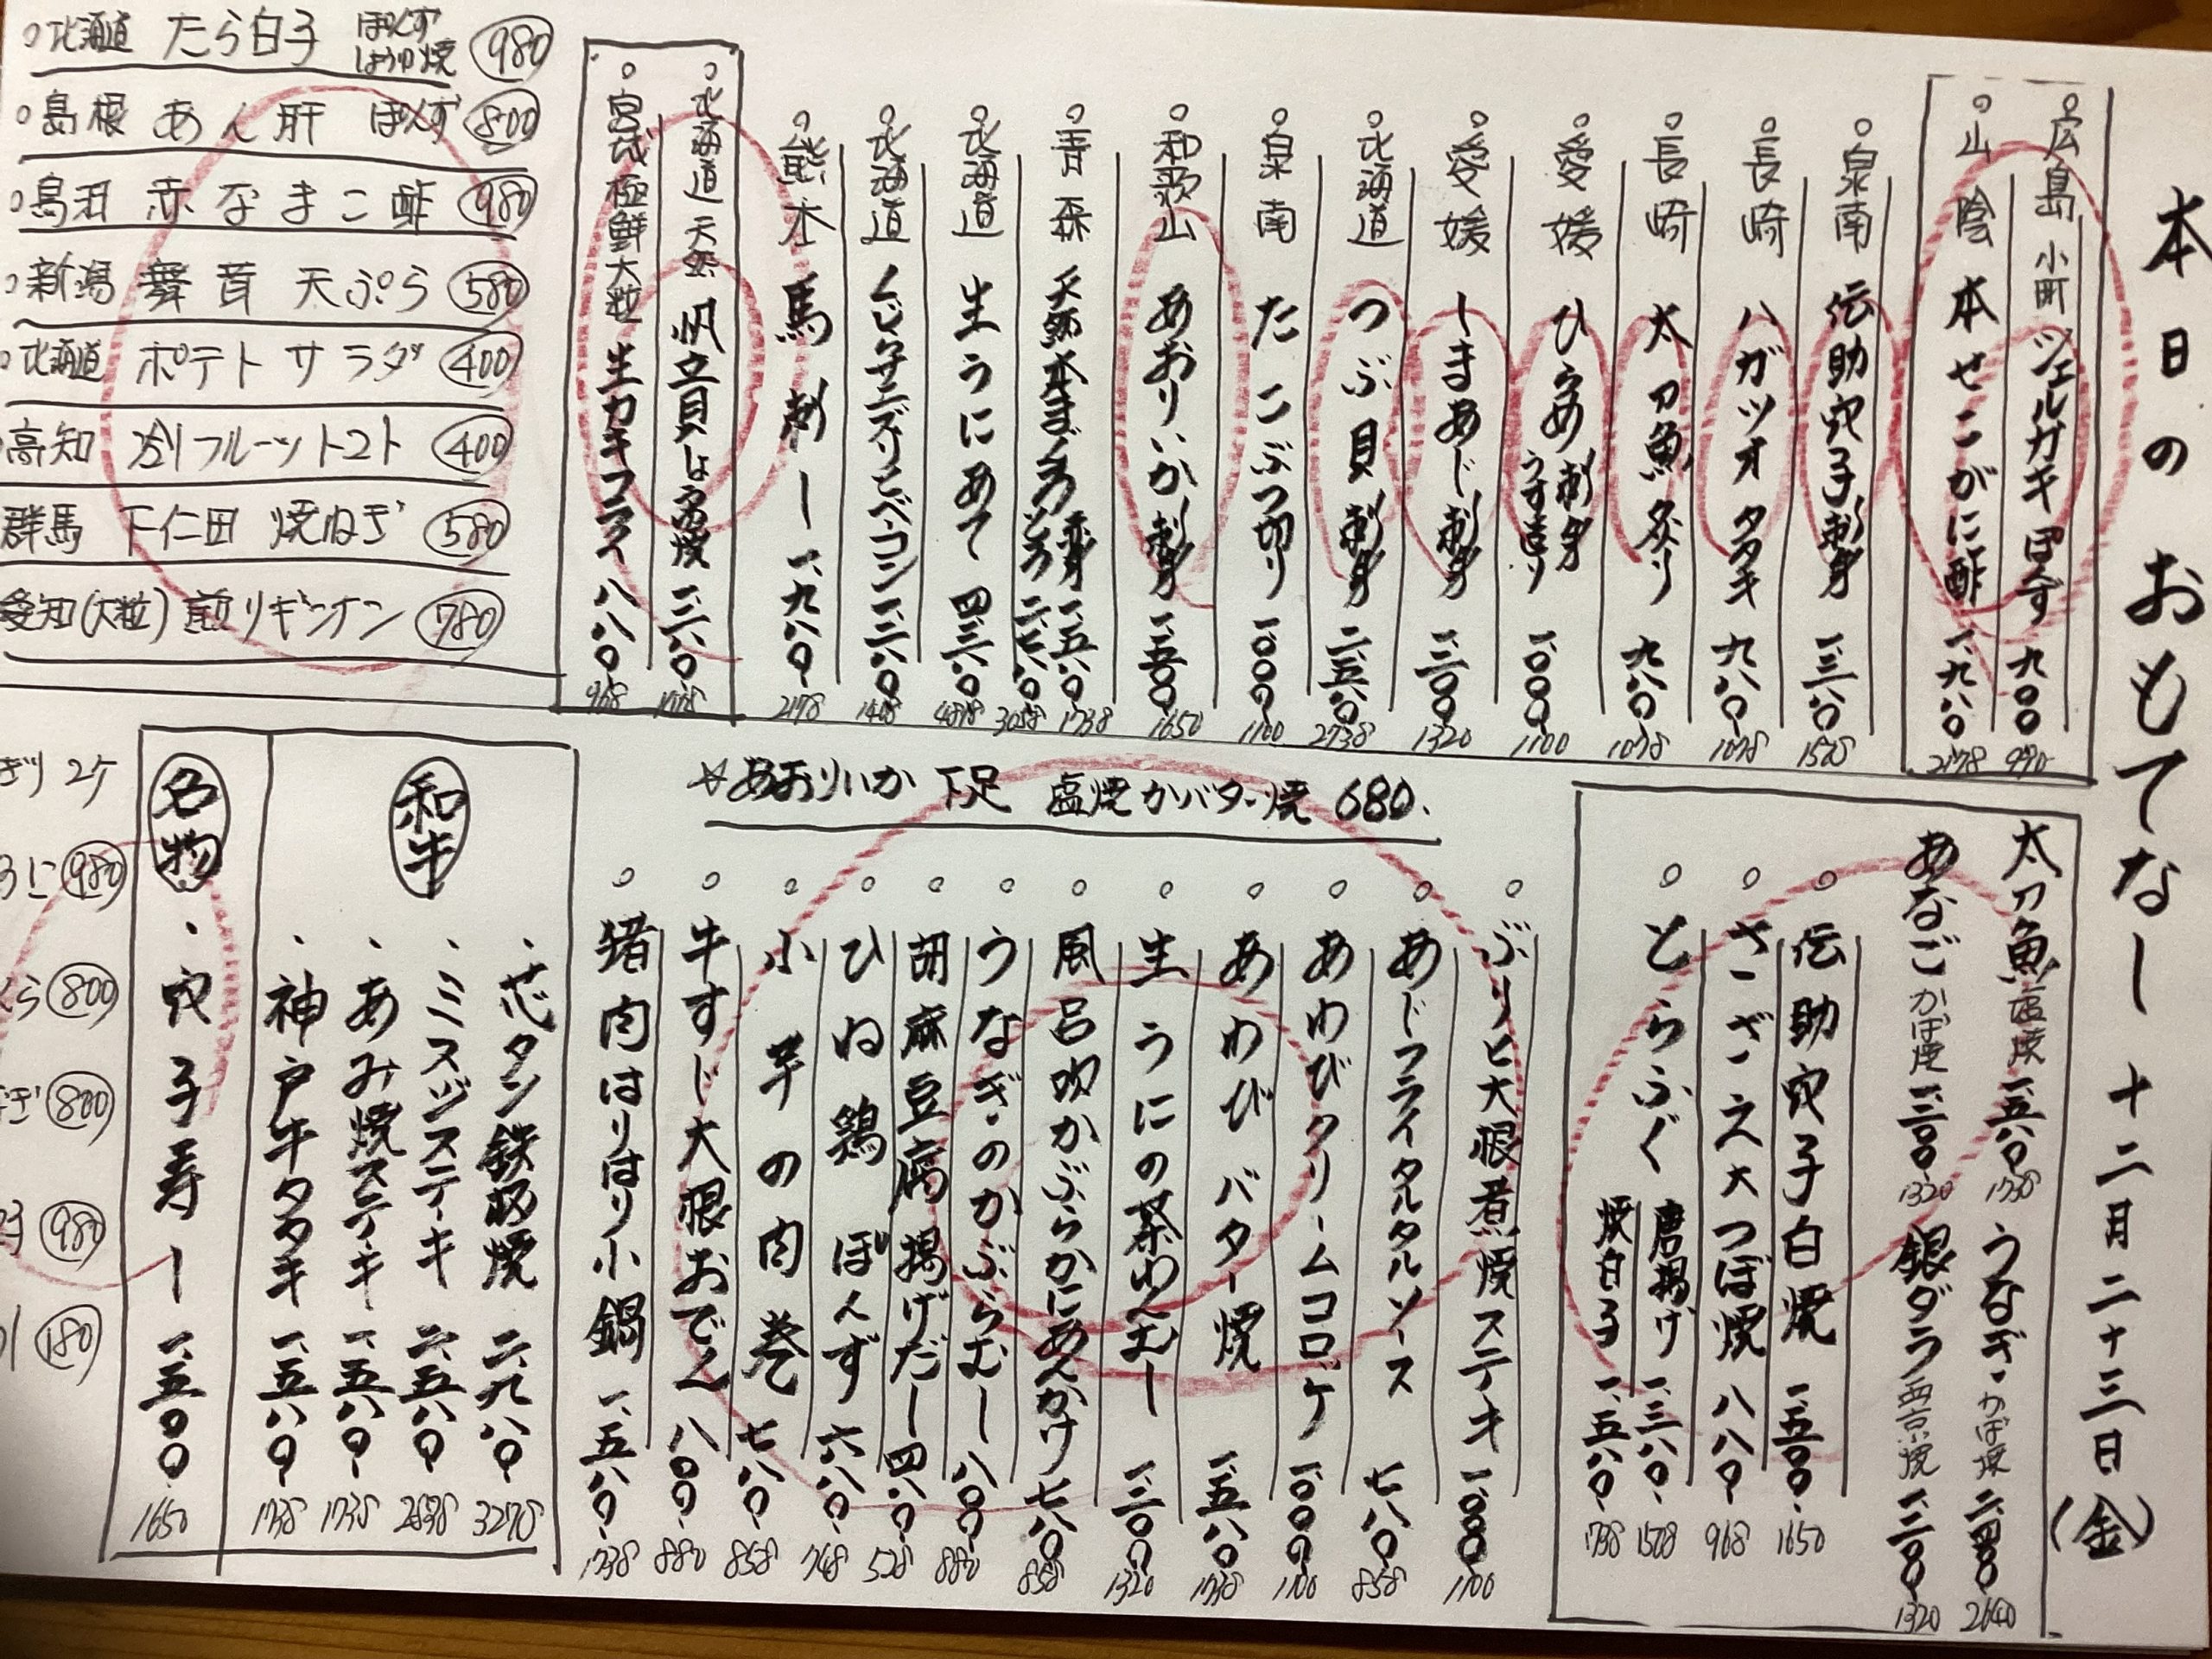 本日のおもてなし 十二月二十三日(金)
○広島 小町 シェルガキ ぽんず 九〇〇 990
○山陰 本せこがに酢 一、九八〇 2178
○泉南 伝助穴子刺身 一、三八〇 1518
○長崎 ハガツオ タタキ 九八〇 1078
○長崎 太刀魚炙り 九八〇 1078
○愛媛 ひらめ 刺身 うす造り 一、〇〇〇 1100
○愛媛 しまあじ刺身 一、二〇〇 1320
○北海道 つぶ貝刺身
○泉南 たこぶつ切り 一、〇〇〇 1100
○和歌山 あおりいか刺身 一、五〇〇 1650
○青森 天然本まぐろ 赤身 一、五八〇 1738
とろ 二、七八〇 3058
○北海道 生うにあて 四、三八〇
○北海道 くじらサエズリとベーコン
○熊本 馬刺し 一、九八〇 2178
○北海道 天然 帆立貝しょうゆ焼
○宮城 極鮮大粒 生カキフライ 八八〇 968
○北海道 たら白子 ぽんず しょうゆ焼 980
○島根 あん肝 ぽんず 800
○島根 赤なまこ酢 980
○新潟 舞茸 天ぷら 580
○北海道 ポテトサラダ 400
高知 冷 フルーツトマト 400
群馬 下仁田 焼ねぎ 580
愛知(大粒) 煎りギンナン 780
太刀魚 塩焼 一、五八〇 1738
うなぎ かば焼 二、四〇〇 2640
あなご かば焼 一、二〇〇 1320
銀ダラ 西京焼 一、二〇〇 1320
○伝助穴子白焼 一、五〇〇 1650
○さざえ大つぼ焼 八八〇 968
○とらふぐ 唐揚げ 一、三八〇 1518
焼白子 一、五八〇 1738
☆あおりいか 下足 塩焼かバター焼 680.
○ぶりと大根煮焼ステキ 一、〇〇〇 1100
○あじフライタルタルソース 七八〇 858
○あわびクリームコロッケ 一、〇〇〇 1100
○あわび バター焼 一、五八〇 1738
○生うにの茶わんむし 一、二〇〇 1320
○風呂吹かぶらかにあんかけ 七八〇 858
○うなぎのかぶらむし 八〇〇 880
○胡麻豆腐揚げだし 四八〇 528
○ひね鶏 ぽんず 六八〇 748
○小芋の肉巻 七八〇 858
○牛すじ大根おでん 八〇〇 880
○猪肉はりはり小鍋 一、五八〇 1738
和牛
・芯タン鉄板焼 二、九八〇 3278
・ミスジステーキ 二、五八〇 2838
・あみ焼ステーキ 一、五八〇 1738
・神戸牛タタキ 一、五八〇 1738
名物
・穴子寿し 一、五〇〇 1650
ぎり 2ケ
980
800
800
980
180